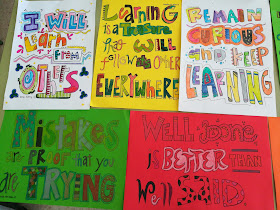 I Will
Learn
FROM
OTHERS
LEARNING
is a Treasure
that WILL
follow its OWNER
EVERYWHERE
REMAIN
CURIOUS
and KEEP
LEARNING
Mistakes
are PROOF that you
are TRYING
WELL Done
is BETTER THAN
Well SAID